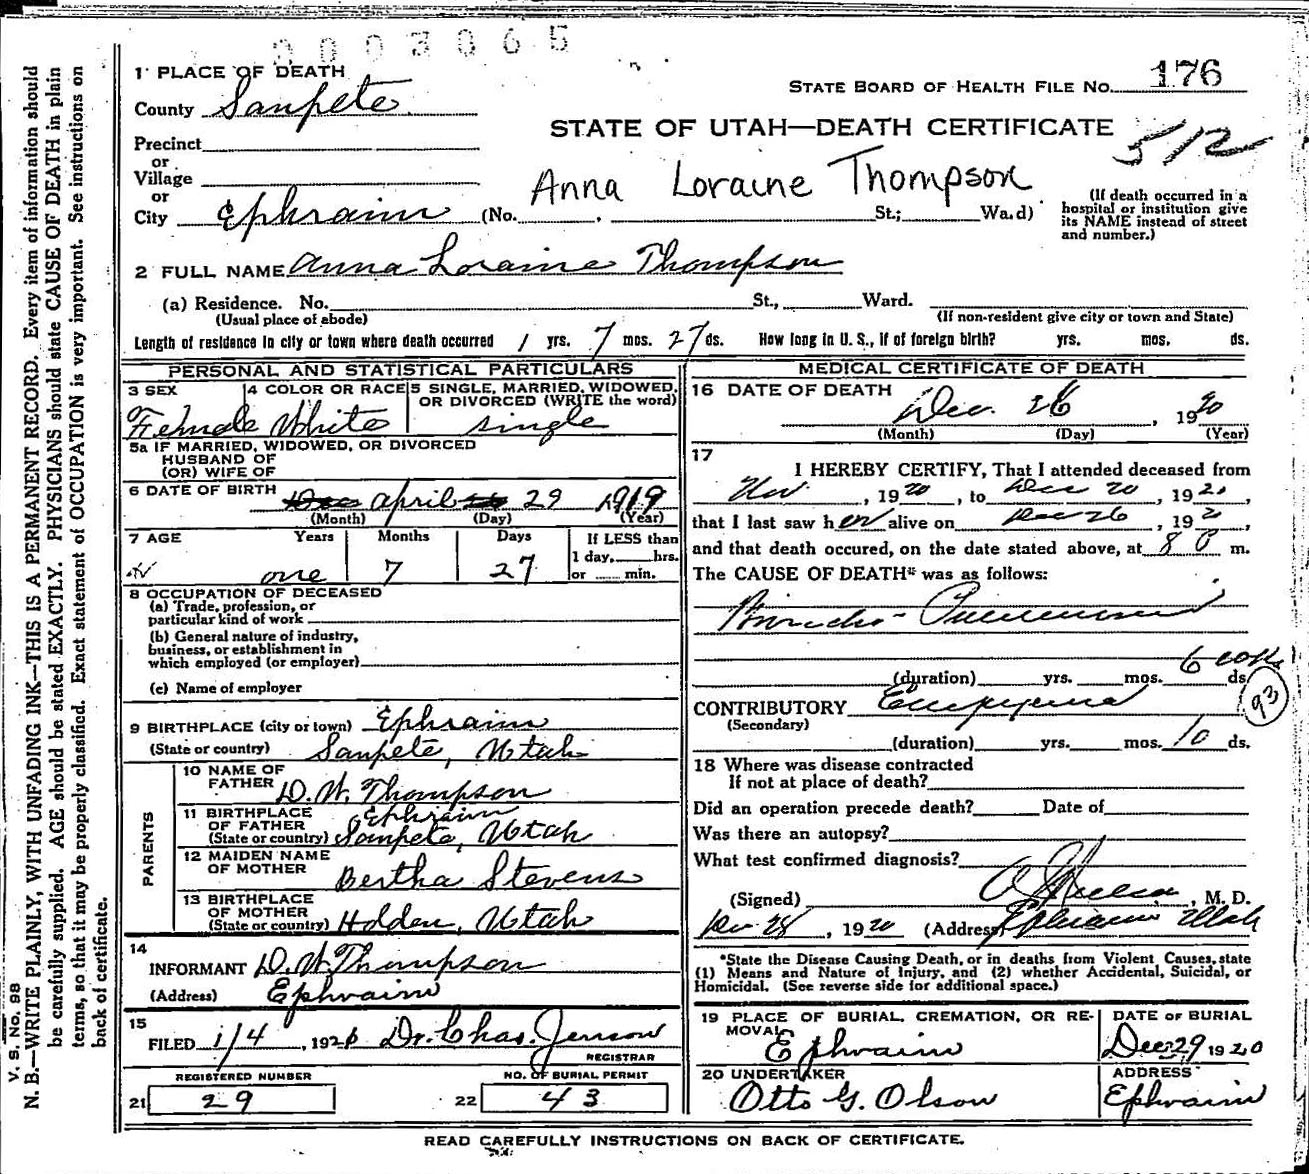 0003065
1 PLACE OF DEATH
County Sanpete
STATE BOARD OF HEALTH FILE NO. 176
STATE OF UTAH—DEATH CERTIFICATE
512
Precinct
or
Village
or
City Ephraim (No. , St.; Wa.d)
Anna Loraine Thompson
(If death occurred in a
hospital or institution give
its NAME instead of street
and number.)
2 FULL NAME Anna Loraine Thompson
(a) Residence. No. St., Ward.
(Usual place of abode) (If non-resident give city or town and State)
Length of residence in city or town where death occurred 1 yrs. 7 mos. 27 ds. How long in U. S., if of foreign birth? yrs. mos. ds.
PERSONAL AND STATISTICAL PARTICULARS
3 SEX
Female
4 COLOR OR RACE
White
5 SINGLE, MARRIED, WIDOWED,
OR DIVORCED (WRITE the word)
single
5a IF MARRIED, WIDOWED, OR DIVORCED
HUSBAND OF
(OR) WIFE OF
6 DATE OF BIRTH Dec April 29 1919
(Month) (Day) (Year)
7 AGE Years Months Days
one 7 27
If LESS than
1 day, hrs.
or min.
8 OCCUPATION OF DECEASED
(a) Trade, profession, or
particular kind of work
(b) General nature of industry,
business, or establishment in
which employed (or employer)
(c) Name of employer
9 BIRTHPLACE (city or town) Ephraim
(State or country) Sanpete, Utah
PARENTS
10 NAME OF
FATHER D. W. Thompson
11 BIRTHPLACE
OF FATHER Ephraim
(State or country) Sanpete, Utah
12 MAIDEN NAME
OF MOTHER Bertha Stevens
13 BIRTHPLACE
OF MOTHER
(State or country) Holden, Utah
14
INFORMANT D. W. Thompson
(Address) Ephraim
15
FILED 1/4, 192 Dr. Chas. Jenson
REGISTRAR
REGISTERED NUMBER
21 29
NO. OF BURIAL PERMIT
22 43
MEDICAL CERTIFICATE OF DEATH
16 DATE OF DEATH
Dec. 26, 1920
(Month) (Day) (Year)
17
I HEREBY CERTIFY, That I attended deceased from
Nov, 1920, to Dec 20, 1920,
that I last saw her alive on Dec 26, 192,
and that death occured, on the date stated above, at 8 P m.
The CAUSE OF DEATH* was as follows:
Broncho-Pneumonia
6 weeks
(duration) yrs. mos. ds.
93
CONTRIBUTORY Empyema
(Secondary)
(duration) yrs. mos. 10 ds.
18 Where was disease contracted
If not at place of death?
Did an operation precede death? Date of
Was there an autopsy?
What test confirmed diagnosis?
(Signed) , M. D.
Dec 28, 1920 (Address) Ephraim Utah
*State the Disease Causing Death, or in deaths from Violent Causes, state
(1) Means and Nature of Injury, and (2) whether Accidental, Suicidal, or
Homicidal. (See reverse side for additional space.)
19 PLACE OF BURIAL, CREMATION, OR RE-
MOVAL
Ephraim
DATE OF BURIAL
Dec 29 1920
20 UNDERTAKER
Otto G. Olson
ADDRESS
Ephraim
READ CAREFULLY INSTRUCTIONS ON BACK OF CERTIFICATE.
V. S. No. 98
N. B.—WRITE PLAINLY, WITH UNFADING INK—THIS IS A PERMANENT RECORD. Every item of information should
be carefully supplied. AGE should be stated EXACTLY. PHYSICIANS should state CAUSE OF DEATH in plain
terms, so that it may be properly classified. Exact statement of OCCUPATION is very important. See instructions on
back of certificate.